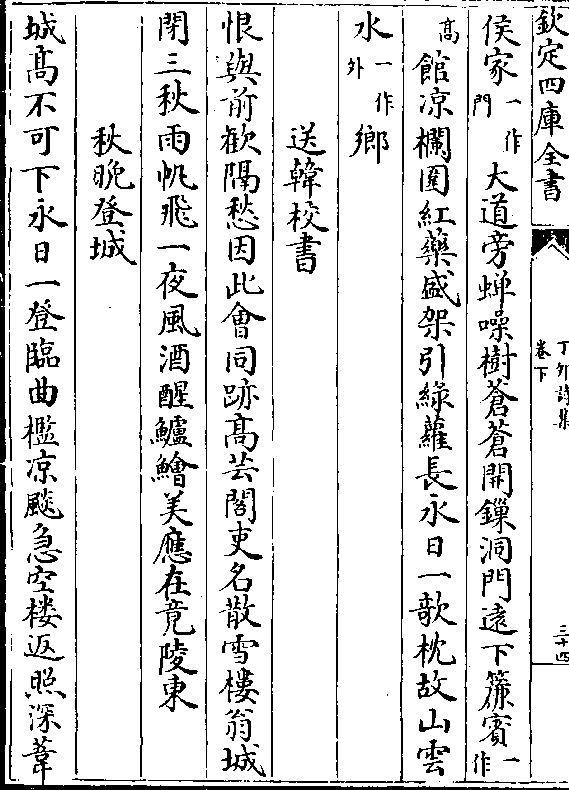 欽定四庫全書
丁卯詩集
卷下
三十四
侯家一作門大道旁蟬噪樹蒼蒼開鏁洞門遠下簾賓一作
高館凉欄圍紅藥盛架引綠蘿長永日一歌枕故山雲
水一作外鄉
送韓校書
恨與前歡隔愁因此會同跡高芸閣吏名散雪樓翁城
閉三秋雨帆飛一夜風酒醒鱸鱠美應在竟陵東
秋晚登城
城高不可下永日一登臨曲檻凉飈急空樓返照深葦